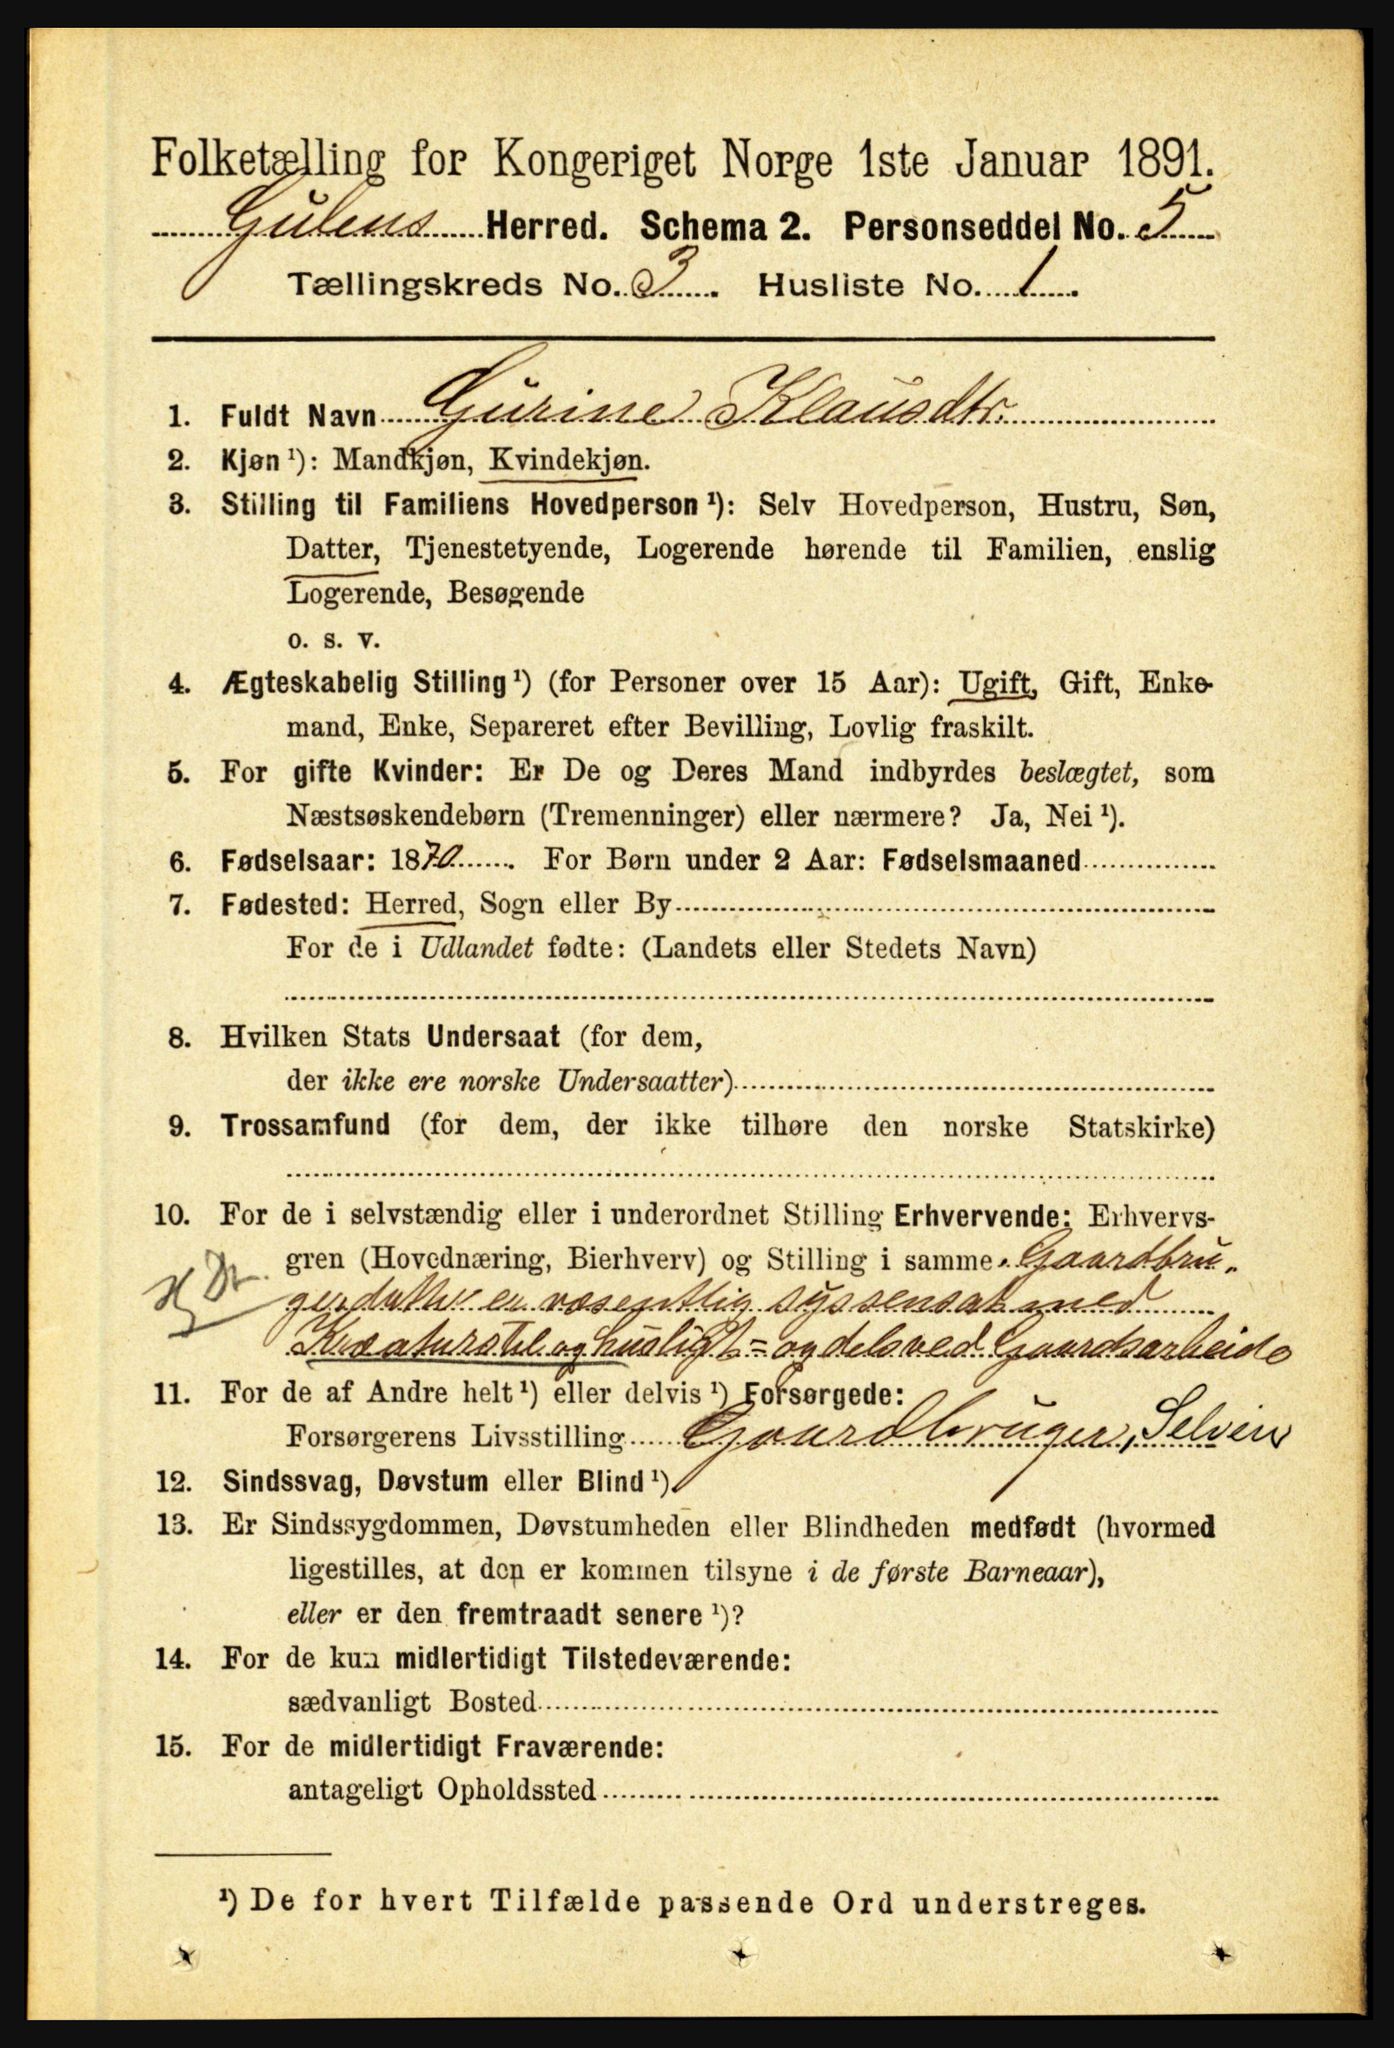 Folketælling for Kongeriget Norge 1ste Januar 1891.
Gulens Herred. Schema 2. Personseddel No. 5
Tællingskreds No. 3. Husliste No. 1.
1. Fuldt Navn Gurine Klausdtr.
2. Kjøn ¹): Mandkjøn, Kvindekjøn.
3. Stilling til Familiens Hovedperson ¹): Selv Hovedperson, Hustru, Søn,
Datter, Tjenestetyende, Logerende hørende til Familien, enslig
Logerende, Besøgende
o. s. v.
4. Ægteskabelig Stilling ¹) (for Personer over 15 Aar): Ugift, Gift, Enke-
mand, Enke, Separeret efter Bevilling, Lovlig fraskilt.
5. For gifte Kvinder: Er De og Deres Mand indbyrdes beslægtet, som
Næstsøskendebørn (Tremenninger) eller nærmere? Ja, Nei ¹).
6. Fødselsaar: 1870. For Børn under 2 Aar: Fødselsmaaned
7. Fødested: Herred, Sogn eller By
For de i Udlandet fødte: (Landets eller Stedets Navn)
8. Hvilken Stats Undersaat (for dem,
der ikke ere norske Undersaatter)
9. Trossamfund (for dem, der ikke tilhøre den norske Statskirke)
10. For de i selvstændig eller i underordnet Stilling Erhvervende: Erhvervs-
gren (Hovednæring, Bierhverv) og Stilling i samme. Gaardbru-
gerdatter er væsentlig syssensat med
Kreaturstel og husligt - og dels ved Gaardsarbeide
11. For de af Andre helt ¹) eller delvis ¹) Forsørgede:
Forsørgerens Livsstilling Gaardbruger, Selveier
12. Sindssvag, Døvstum eller Blind ¹)
13. Er Sindssygdommen, Døvstumheden eller Blindheden medfødt (hvormed
ligestilles, at den er kommen tilsyne i de første Barneaar),
eller er den fremtraadt senere ¹)?
14. For de kun midlertidigt Tilstedeværende:
sædvanligt Bosted
15. For de midlertidigt Fraværende:
antageligt Opholdssted
¹) De for hvert Tilfælde passende Ord understreges.